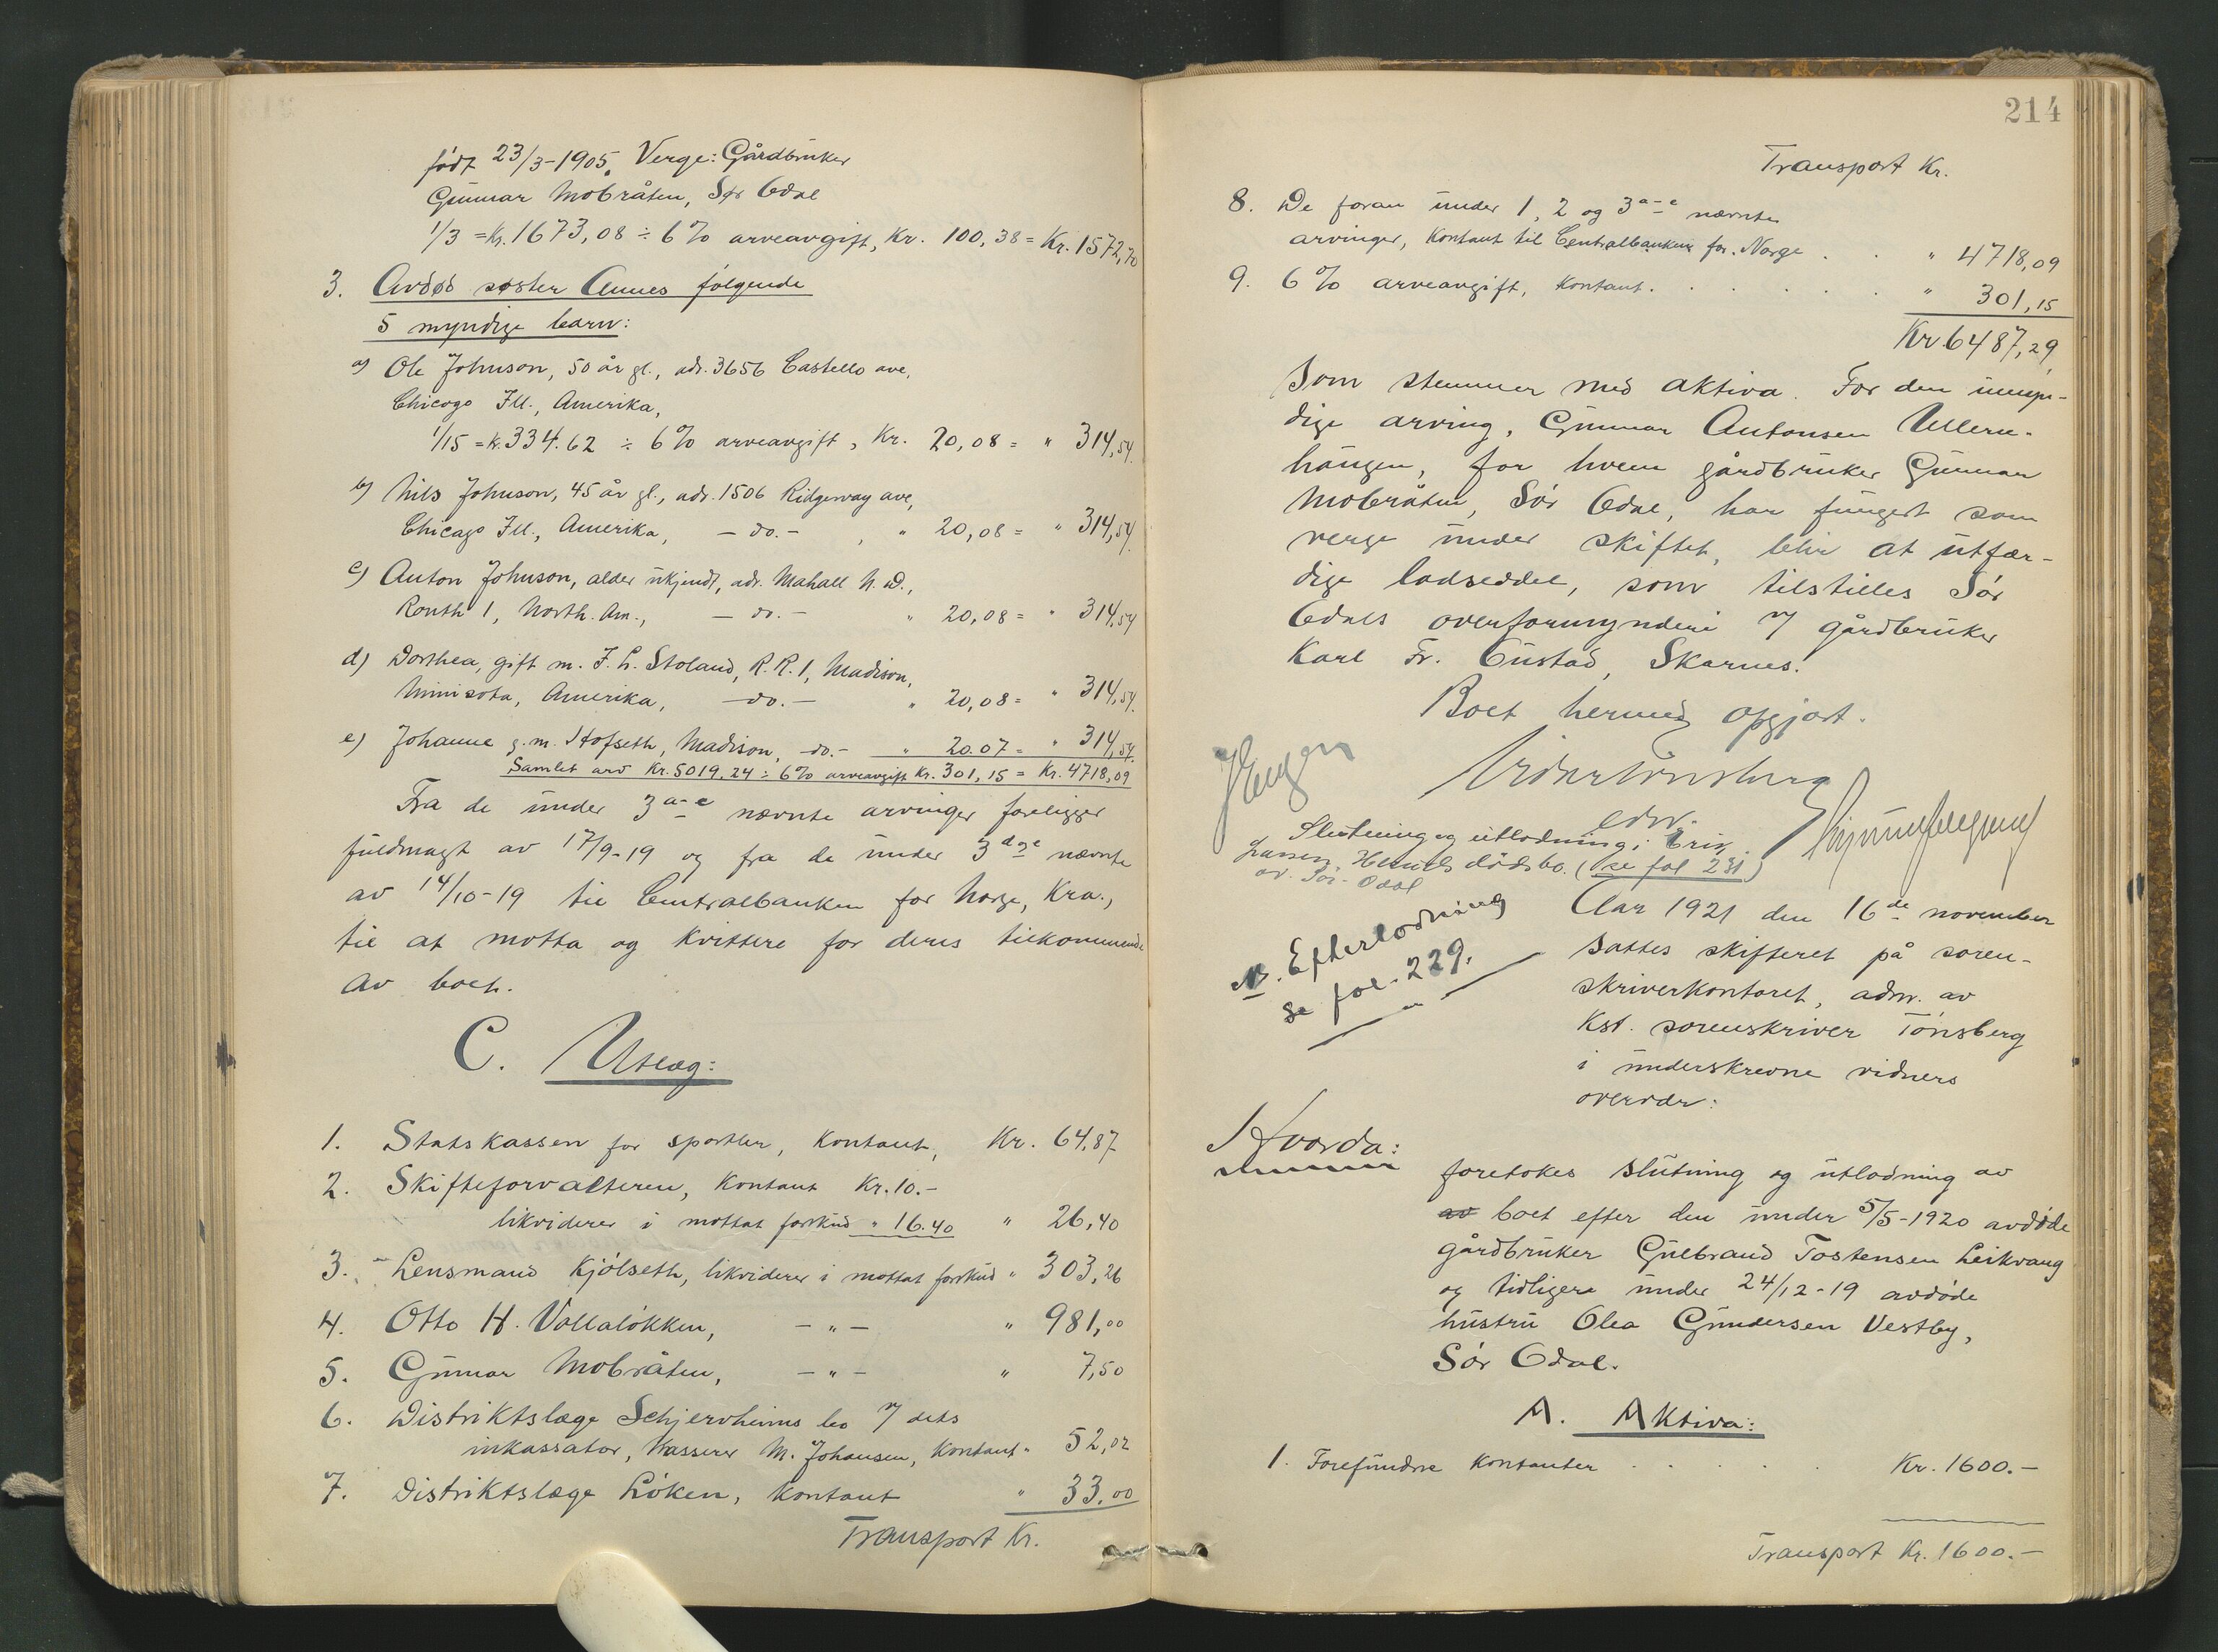 født 23/3-1905. Verge: Gårdbruker
Gunnar Mobråten, Sør Odal
1/3 = Kr. 1673,08 ÷ 6% arveavgift, Kr. 100,38 = Kr. 1572,70
3. Avdød søster Annes følgende
5 myndige barn:
a) Ole Johnson, 50 år gl., adr. 3656 Castello ave,
Chicago Ill., Amerika,
1/15 = kr. 334.62 ÷ 6% arveavgift, Kr. 20,08 = " 314,54
b) Nils Johnson, 45 år gl., adr. 1506 Ridgeway ave,
Chicago Ill., Amerika, - do. - , " 20,08 = " 314,54
c) Anton Johnson, alder ukjendt, adr. Mahall N. D.,
Routh 1, North. Am., - do. - " 20,08 = " 314,54
d) Dorthea, gift m. J. L. Stoland, R.R. 1, Madison,
Minisota, Amerika, - do. - " 20,08 = " 314,54
e) Johanne g. m. Hofseth, Madison, - do. - " 20.07 = " 314,54
Samlet arv Kr. 5019,24 ÷ 6% arveavgift Kr. 301,15 = Kr. 4718,09
Fra de under 3 a-e nævnte arvinger foreligger
fuldmagt av 17/9-19 og fra de under 3 d og e nævnte
av 14/10-19 til Centralbanken for Norge, Kra.,
til at motta og kvittere for deres tilkommende
av boet.
C. Utlæg:
1. Statskassen for sportler, kontant, Kr. 64,87
2. Skifteforvalteren, kontant Kr. 10.-
likviderer i mottat forskud " 16.40 " 26,40
3. Lensmand Kjølseth, likviderer i mottat forskud " 303,26
4. Otto H. Vollaløkken, - " - " 981,00
5. Gunnar Mobråten, - " - " 7,50
6. Distriktslæge Schjervheims bo v/ dets
inkassator, kasserer M. Johansen, kontant " 52,02
7. Distriktslæge Løken, kontant " 33,00
Transport Kr.
214
Transport Kr.
8. De foran under 1, 2 og 3 a-e nævnte
arvinger, kontant til Centralbanken for Norge . . " 4718,09
9. 6% arveavgift, kontant. . . . . . . " 301,15
Kr. 6487,29
som stemmer med aktiva. For den umyn-
dige arving, Gunnar Antonsen Ullern-
haugen, for hvem gårdbruker Gunnar
Mobråten, Sør Odal, har fungert som
verge under skiftet, blir at utfær-
dige lodseddel, som tilstilles Sør
Odals overformynderi v/ gårdbruker
Karl Fr. Gustad, Skarnes.
Boet hermed opgjort.
edsv.
Slutning og utlodning i Erik
Larsen Hennels dødsbo. (se fol 231)
av Sør-Odal
N. Efterlodning
se fol. 229.
Aar 1921 den 16de november
sattes skifteret på soren-
skriverkontoret, adm. av
Kst. sorenskriver Tønsberg
i underskrevne vidners
overvær:
Hvorda:
foretokes slutning og utlodning av
av boet efter den under 5/5-1920 avdøde
gårdbruker Gulbrand Tostensen Leikvang
og tidligere under 24/12-19 avdøde
hustru Olea Gundersen Vestby,
Sør Odal.
A. Aktiva:
1. Forefundne kontanter . . . . . Kr. 1600.-
Transport Kr. 1600.-